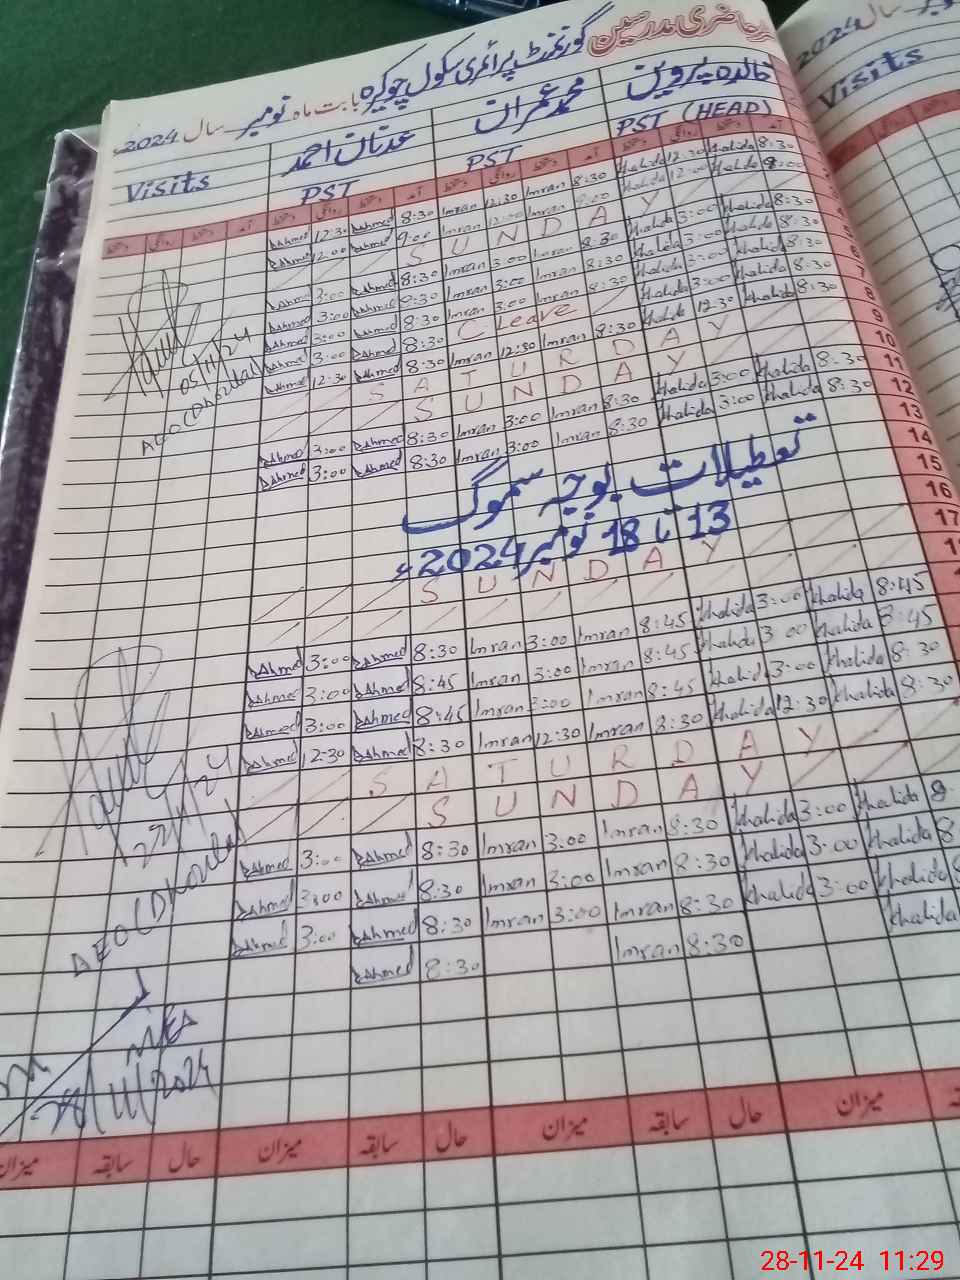 حاضری مدرسین گورنمنٹ پرائمری سکول چوکیرہ بابت ماہ نومبر سال 2024ء
خالدہ پروین محمد عمران عدنان احمد
PST (HEAD) PST PST Visits
آمد دستخط روانگی دستخط آمد دستخط روانگی دستخط آمد دستخط روانگی دستخط آمد دستخط روانگی دستخط
8:30 Khalida 12:30 Khalida 8:30 Imran 12:30 Imran 8:30 Ahmed 12:30 Ahmed
Khalida 12:00 Khalida 9:00 Imran 12:00 Imran 9:00 Ahmed 12:00 Ahmed
SUNDAY
8:30 Khalida 3:00 Khalida 8:30 Imran 3:00 Imran 8:30 Ahmed 3:00 Ahmed
8:30 Khalida 3:00 Khalida 8:30 Imran 3:00 Imran 8:30 Ahmed 3:00 Ahmed
8:30 Khalida 3:00 Khalida 8:30 Imran 3:00 Imran 8:30 Ahmed 3:00 Ahmed
8:30 Khalida 3:00 Khalida C. Leave 8:30 Ahmed 3:00 Ahmed
8:30 Khalida 12:30 Khalida 8:30 Imran 12:30 Imran 8:30 Ahmed 12:30 Ahmed
SATURDAY
SUNDAY
8:30 Khalida 3:00 Khalida 8:30 Imran 3:00 Imran 8:30 Ahmed 3:00 Ahmed
8:30 Khalida 3:00 Khalida 8:30 Imran 3:00 Imran 8:30 Ahmed 3:00 Ahmed
تعطیلات بوجہ سموگ
13 تا 18 نومبر 2024ء
SUNDAY
8:45 Khalida 3:00 Khalida 8:45 Imran 3:00 Imran 8:30 Ahmed 3:00 Ahmed
8:45 Khalida 3:00 Khalida 8:45 Imran 3:00 Imran 8:45 Ahmed 3:00 Ahmed
8:30 Khalida 3:00 Khalida 8:45 Imran 3:00 Imran 8:45 Ahmed 3:00 Ahmed
8:30 Khalida 12:30 Khalida 8:30 Imran 12:30 Imran 8:30 Ahmed 12:30 Ahmed
SATURDAY
SUNDAY
Khalida 3:00 Khalida 8:30 Imran 3:00 Imran 8:30 Ahmed 3:00 Ahmed
Khalida 3:00 Khalida 8:30 Imran 3:00 Imran 8:30 Ahmed 3:00 Ahmed
Khalida 3:00 Khalida 8:30 Imran 3:00 Imran 8:30 Ahmed 3:00 Ahmed
Khalida 8:30 Imran 8:30 Ahmed
05/11/24
AEO
AEO
میزان حال سابقہ میزان حال سابقہ میزان حال سابقہ میزان
5
6
7
8
9
10
11
12
13
14
15
16
17
2024
سال
Visits
28-11-24 11:29